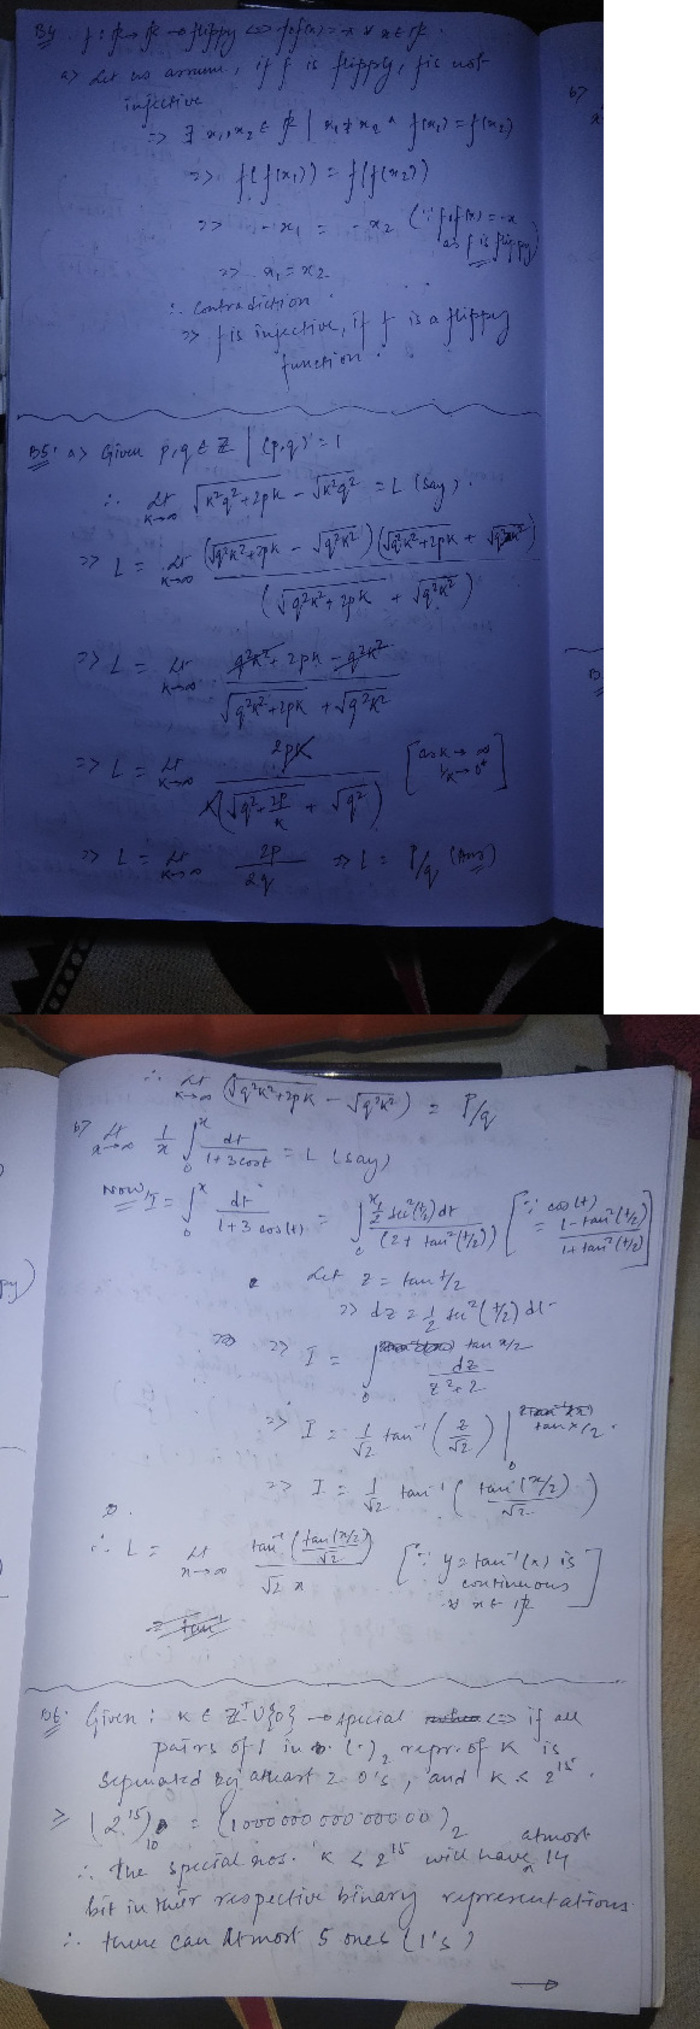 B4 f: ℝ → ℝ → flippy <=> f∘f(x) = -x ∀ x ∈ ℝ.
a> Let us assume, if f is flippy, f is not
injective
=> ∃ x₁, x₂ ∈ ℝ | x₁ ≠ x₂ ^ f(x₁) = f(x₂)
=> f(f(x₁)) = f(f(x₂))
=> -x₁ = -x₂ (∵ f∘f(x) = -x
as f is flippy)
=> x₁ = x₂
∴ contradiction
=> f is injective, if f is a flippy
function.
b>
B5. a> Given p, q ∈ ℤ | (p,q) = 1
∴ Lt k→∞ √(k²q²+2pk) - √(k²q²) = L (say).
=> L = Lt k→∞ (√(q²k²+2pk) - √(q²k²))(√(q²k²+2pk) + √(q²k²)) / (√(q²k²+2pk) + √(q²k²))
=> L = Lt k→∞ (q²k² + 2pk - q²k²) / (√(q²k²+2pk) + √(q²k²))
=> L = Lt k→∞ 2pk / k(√(q²+2p/k) + √(q²)) [as k → ∞ 1/k → 0⁺]
=> L = Lt k→∞ 2p/2q => L = p/q (Ans)
∴ Lt k→∞ (√(q²k²+2pk) - √(q²k²)) = p/q
b> Lt x→∞ 1/x ∫₀ˣ dt/(1+3cost) = L (say)
Now, I = ∫₀ˣ dt/(1+3cos(t)) = ∫₀ˣ ½ sec²(t/2)dt / (2+tan²(t/2)) [∵ cos(t) = (1-tan²(t/2))/(1+tan²(t/2))]
Let z = tan t/2
=> dz = ½ sec²(t/2) dt
=> => I = ∫₀^(tan x/2) dz/(z²+2)
=> I = 1/√2 tan⁻¹(z/√2) |₀^(tan x/2).
=> I = 1/√2 tan⁻¹(tan(x/2)/√2)
∴ L = Lt x→∞ tan⁻¹(tan(x/2)/√2) / √2 x [∵ y = tan⁻¹(x) is
continuous
∀ x ∈ ℝ]
= tan⁻¹
B6. Given: k ∈ ℤ⁺∪{0} → special <=> if all
pairs of 1 in (·)₂ repr. of k is
separated by atleast 2 0's, and k < 2¹⁵.
=> (2¹⁵)₁₀ = (1000 000 000 000 00)₂
∴ the special nos. k < 2¹⁵ will have atmost 14
bit in their respective binary representations
∴ there can atmost 5 ones (1's)
→